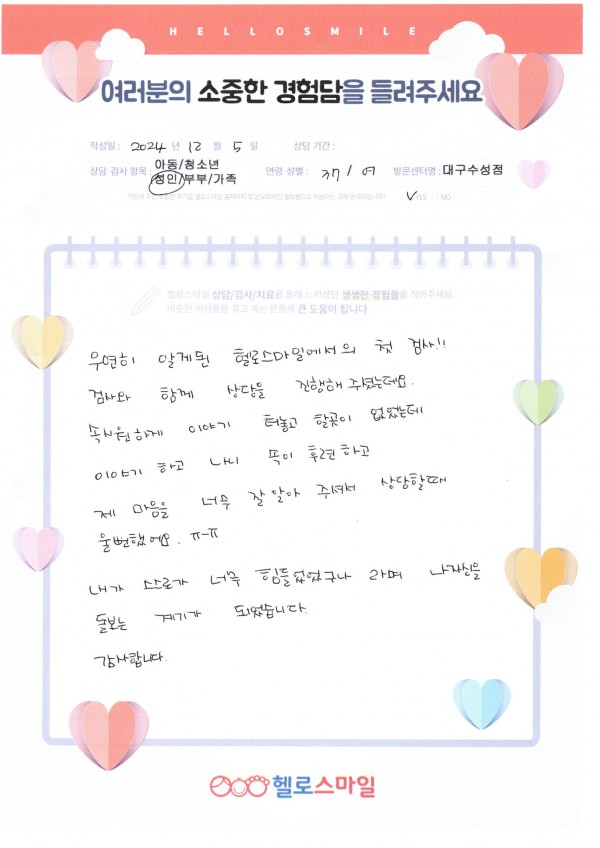 HELLOSMILE
여러분의 소중한 경험담을 들려주세요
작성일 : 2024 년 12 월 5 일 상담 기간 :
상담 검사 항목 : 아동/청소년
성인/부부/가족 연령 성별 : 37 / 여 방문센터명 : 대구수성점
YES NO
헬로스마일 상담/검사/치료를 통해 느끼셨던 생생한 경험들을 적어주세요.
비슷한 어려움을 겪고 계신 분들께 큰 도움이 됩니다.
우연히 알게된 헬로스마일에서의 첫 검사!!
검사와 함께 상담을 진행해 주셨는데요.
속시원하게 이야기 터놓고 할곳이 없었는데
이야기 하고 나니 속이 후련하고
제 마음을 너무 잘 알아 주셔서 상담할때
울뻔했어요. ㅠ-ㅠ
내가 스스로가 너무 힘들었었구나 라며 나자신을
돌보는 계기가 되었습니다.
감사합니다.
헬로스마일